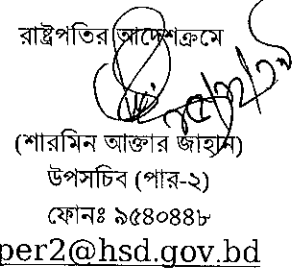 রাষ্ট্রপতির আদেশক্রমে
(শারমিন আক্তার জাহান)
উপসচিব (পার-২)
ফোনঃ ৯৫৪০৪৪৮
per2@hsd.gov.bd